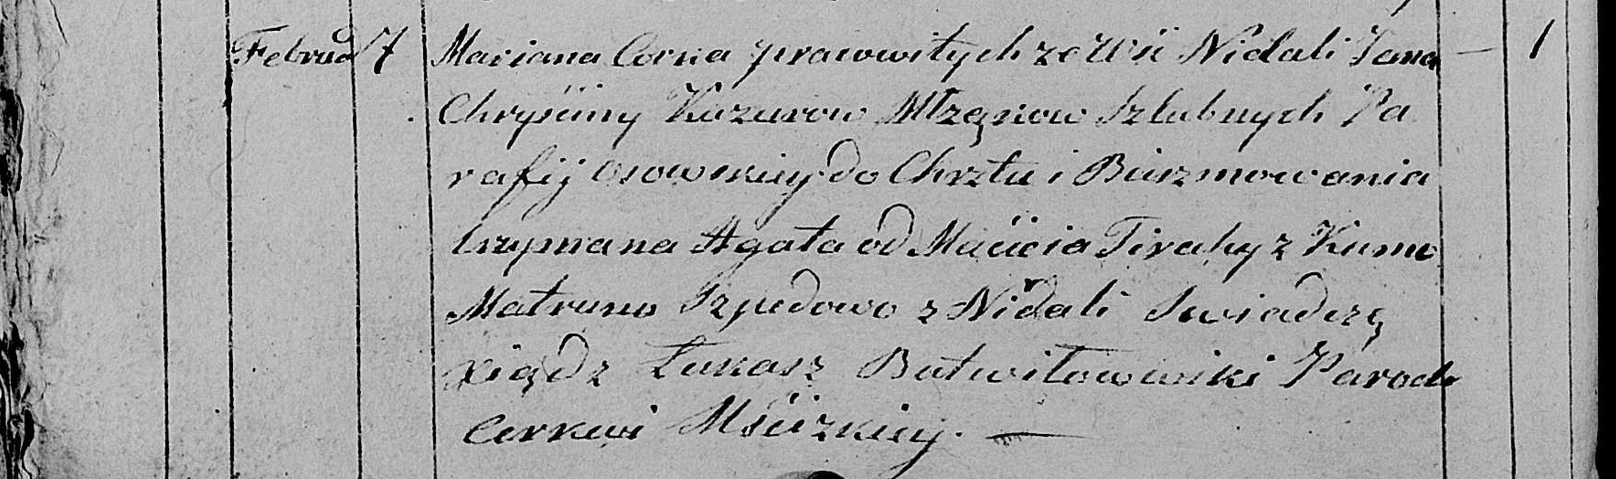 Februa 7 Mariana Corka prawowitych ze Wsi Nidali Jana — 1
Chryściny Kazurow Młżąkow Szlubnych Pa
rafij Osowskiey do Chrztu i Bierzmowania
trzymana Agata od Macieia Tirahy z Kumo
Matruno Szpedowo z Nidali Swiadczą
xiądz Łukasz Butwiłowski Paroch
Cerkwi Mścizkiey. —